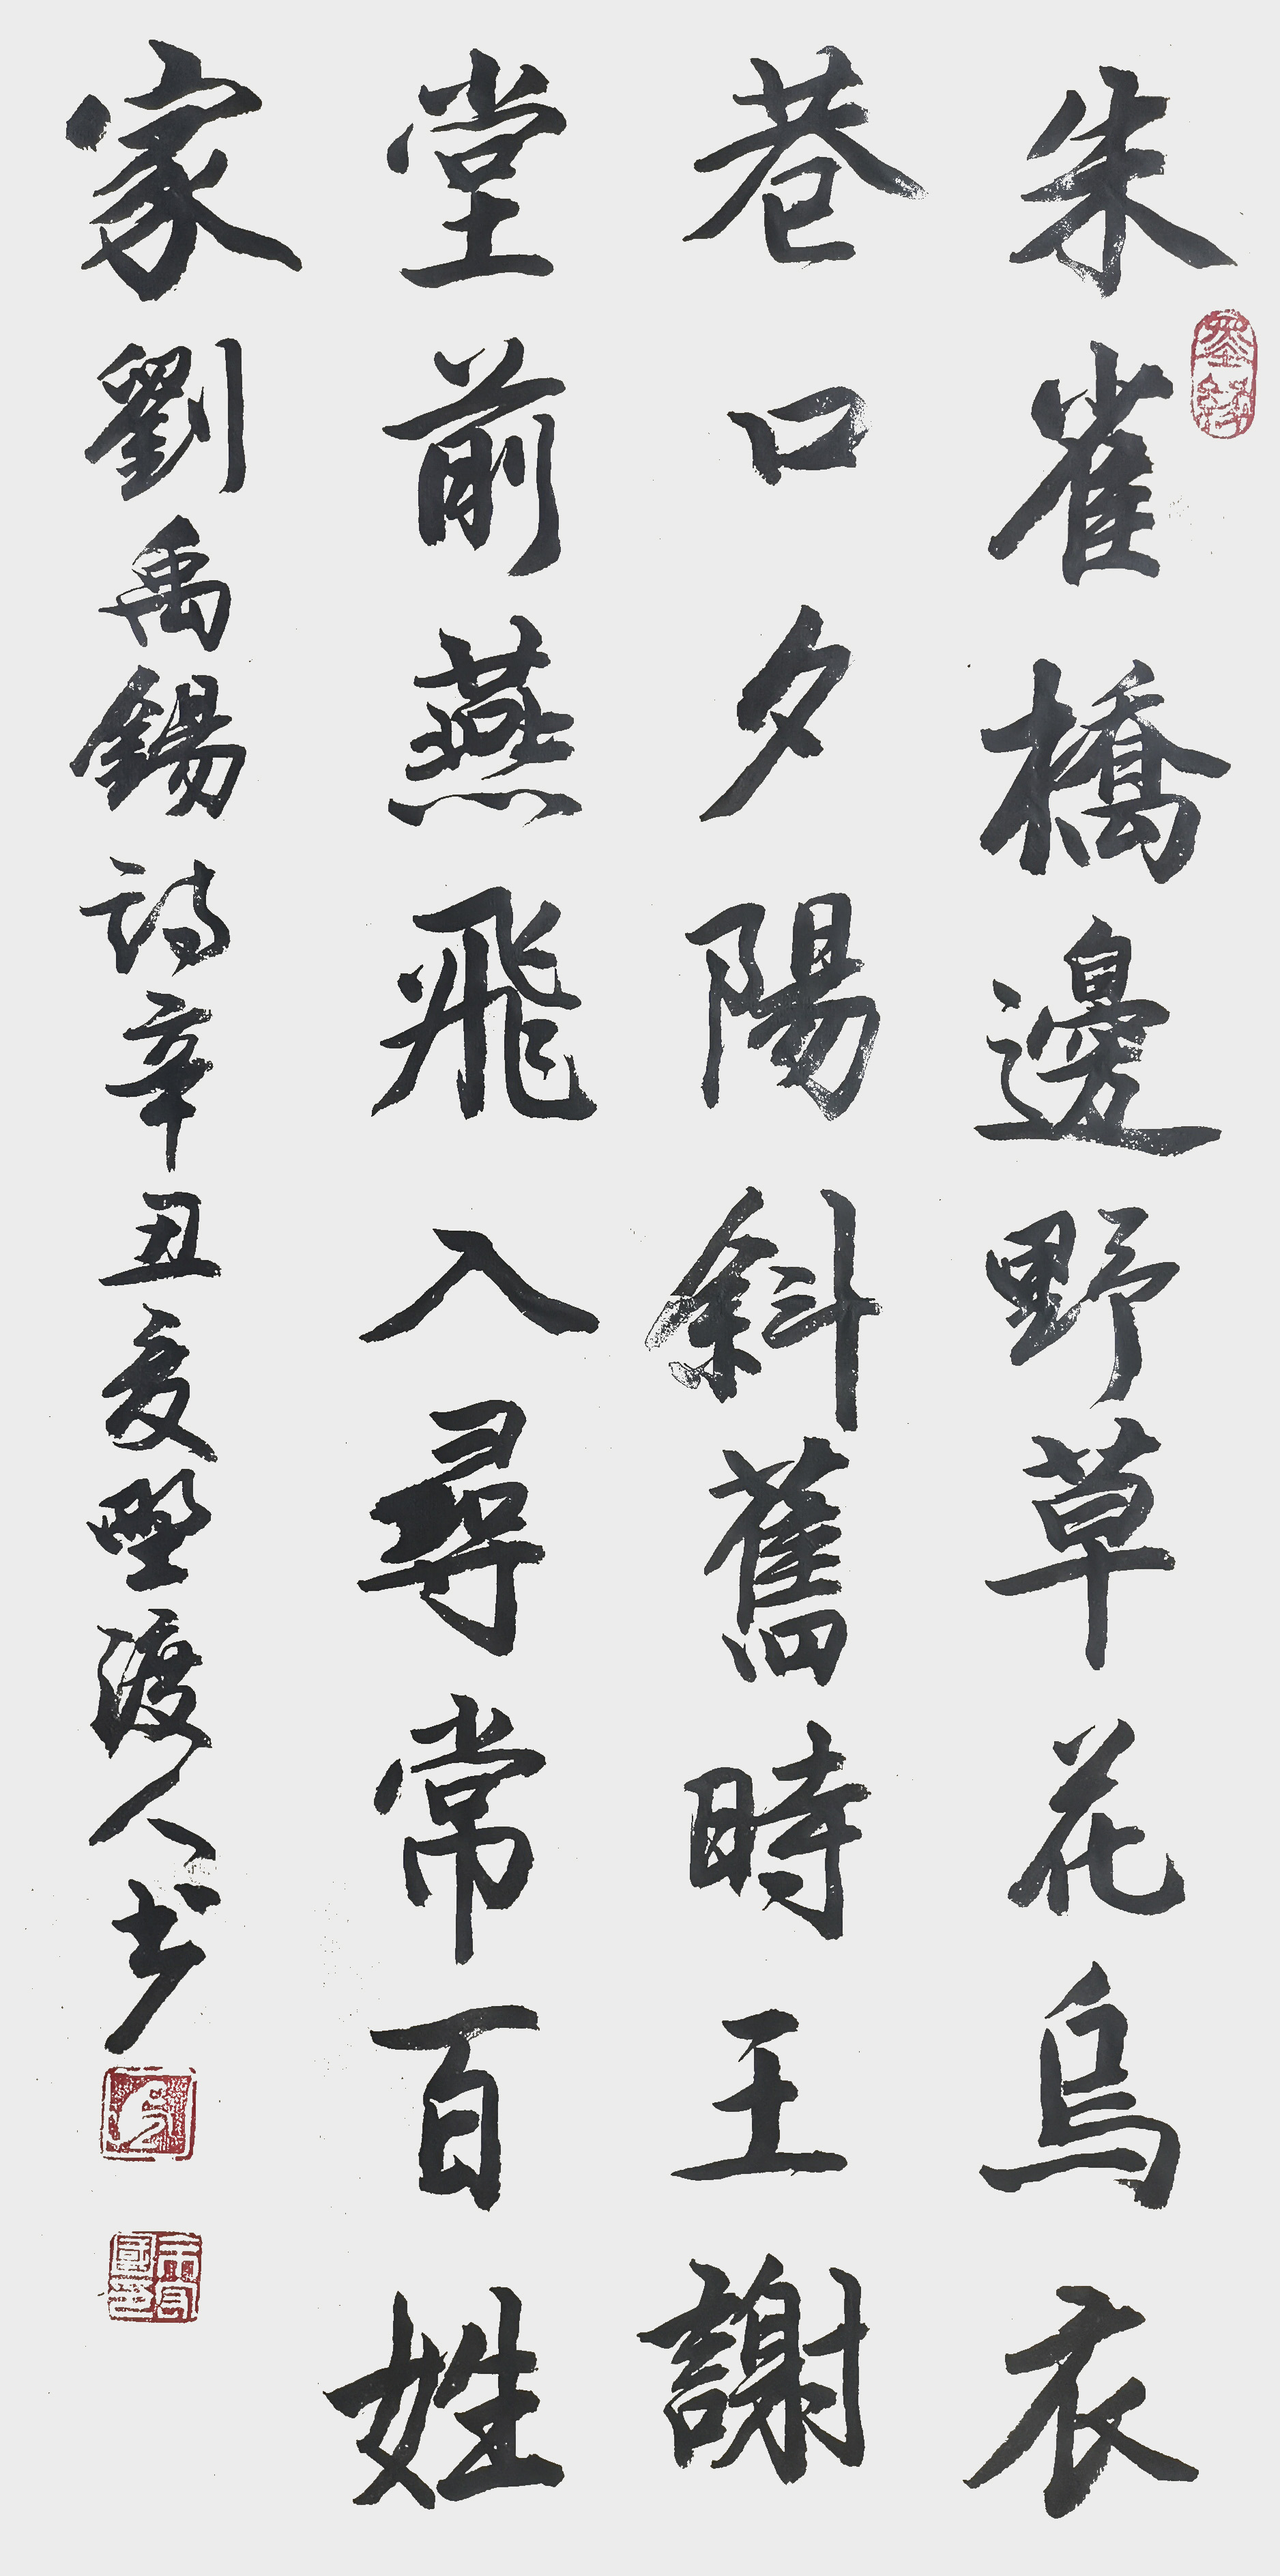 朱雀橋邊野草花烏衣
巷口夕陽斜舊時王謝
堂前燕飛入尋常百姓
家劉禹錫詩辛丑夏野渡人书